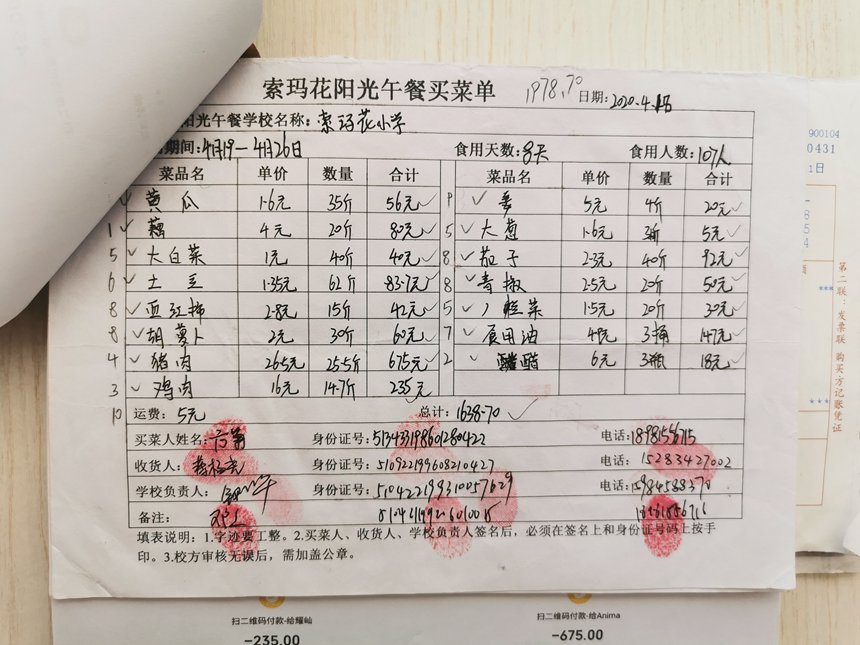 索玛花阳光午餐买菜单 1978.70 日期:2020.4.
阳光午餐学校名称:索玛花小学
期间:4月19—4月26日 食用天数:8天 食用人数:107人
菜品名 单价 数量 合计 菜品名 单价 数量 合计
黄瓜 1.6元 35斤 56元 姜 5元 4斤 20元
1 藕 4元 20斤 80元 5 大葱 1.6元 3斤 5元
5 大白菜 1元 40斤 40元 8 茄子 2.3元 40斤 92元
6 土豆 1.35元 62斤 83.7元 8 青椒 2.5元 20斤 50元
8 西红柿 2.8元 15斤 42元 5 菜 1.5元 20斤 30元
8 胡萝卜 2元 30斤 60元 7 食用油 3桶 147元
4 猪肉 26.5元 25.5斤 675元 2 醋 6元 3瓶 18元
3 鸡肉 16元 14.7斤 235元
10 运费:5元 总计:1638.70
买菜人姓名: 身份证号:513433198601280422 电话:
收货人: 身份证号:510922199608210427 电话:15283427002
学校负责人: 身份证号:510422199310057629 电话:
备注: 邓
填表说明:1.字迹要工整。2.买菜人、收货人、学校负责人签名后,必须在签名上和身份证号码上按手
印。3.校方审核无误后,需加盖公章。
扫二维码付款-给耀屾 扫二维码付款-给Anima
-235.00 -675.00
900104
0431
1日
第二联:发票联 购买方记账凭证